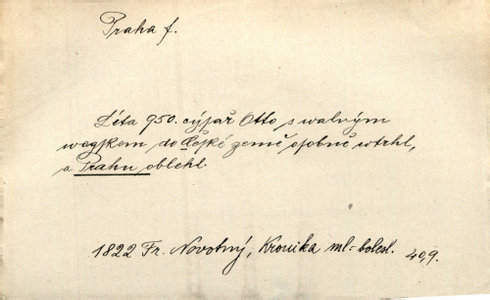 Praha f.
Léta 950. cýsař Otto s walným
wogskem do České země osobně wtrhl,
a Prahu oblehl.
1822 Fr. Novotný, Kronika ml.-bolesl. 40,9.